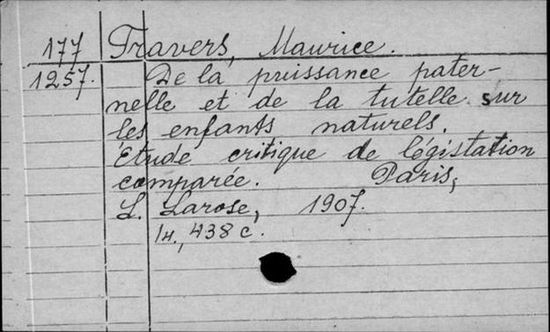 177 Travers, Maurice.
1257. De la puissance pater-
nelle et de la tutelle sur
les enfants naturels.
Étude critique de législation
comparée. Paris,
L. Larose, 1907.
14., 438 c.